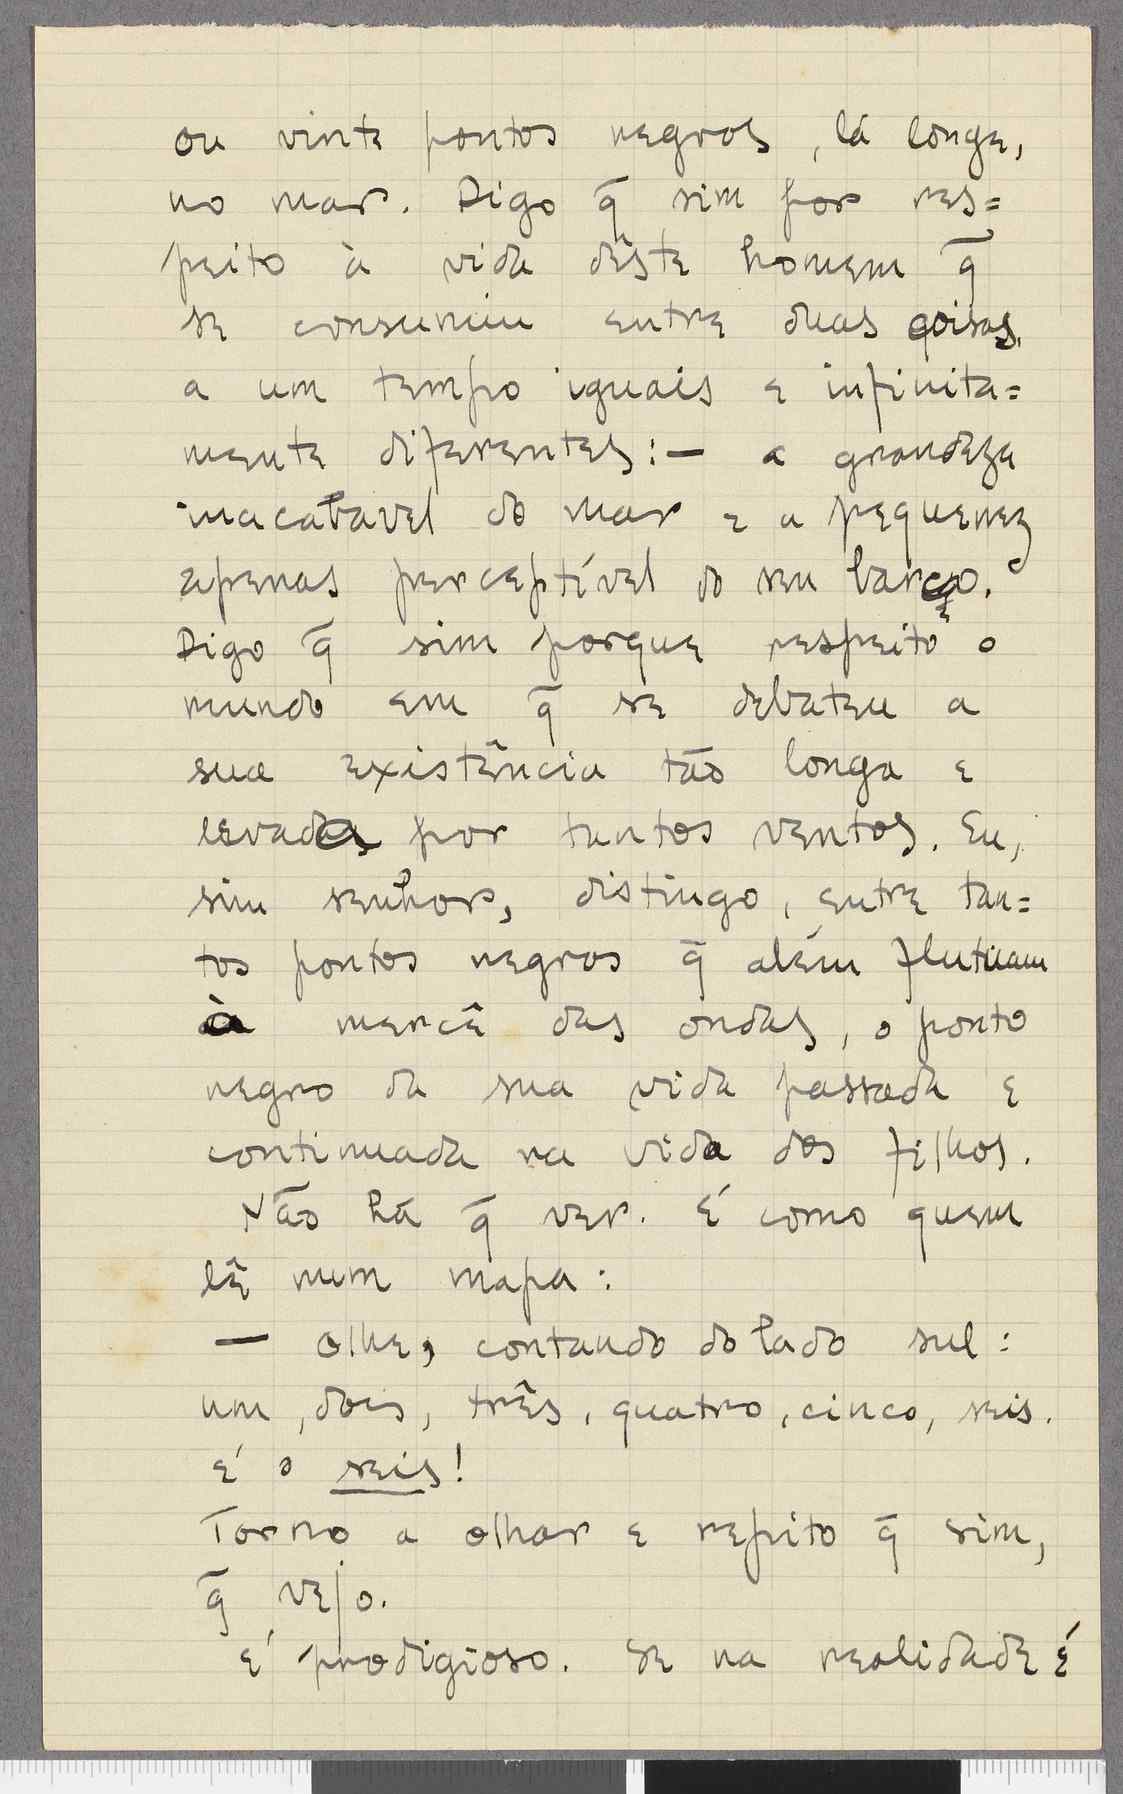 ou vinte pontos negros, lá longe,
no mar. Digo q̄ sim por res=
peito à vida dêste homem q̄
se consumiu entre duas coisas,
a um tempo iguais e infinita=
mente diferentes:— a grandeza
inacabavel do mar e a pequenez
apenas perceptível do seu barco.
Digo q̄ sim porque respeito o
mundo em q̄ se debateu a
sua existência tão longa e
levada por tantos ventos. Eu,
sim senhor, distingo, entre tan=
tos pontos negros q̄ além flutuam
à mercê das ondas, o ponto
negro da sua vida passada e
continuada na vida dos filhos.
Não há q̄ ver. É como quem
lê num mapa:
— Olhe, contando do lado sul:
um, dois, três, quatro, cinco, seis.
É o seis!
Torno a olhar e repito q̄ sim,
q̄ vejo.
É prodigioso. Se na realidade é